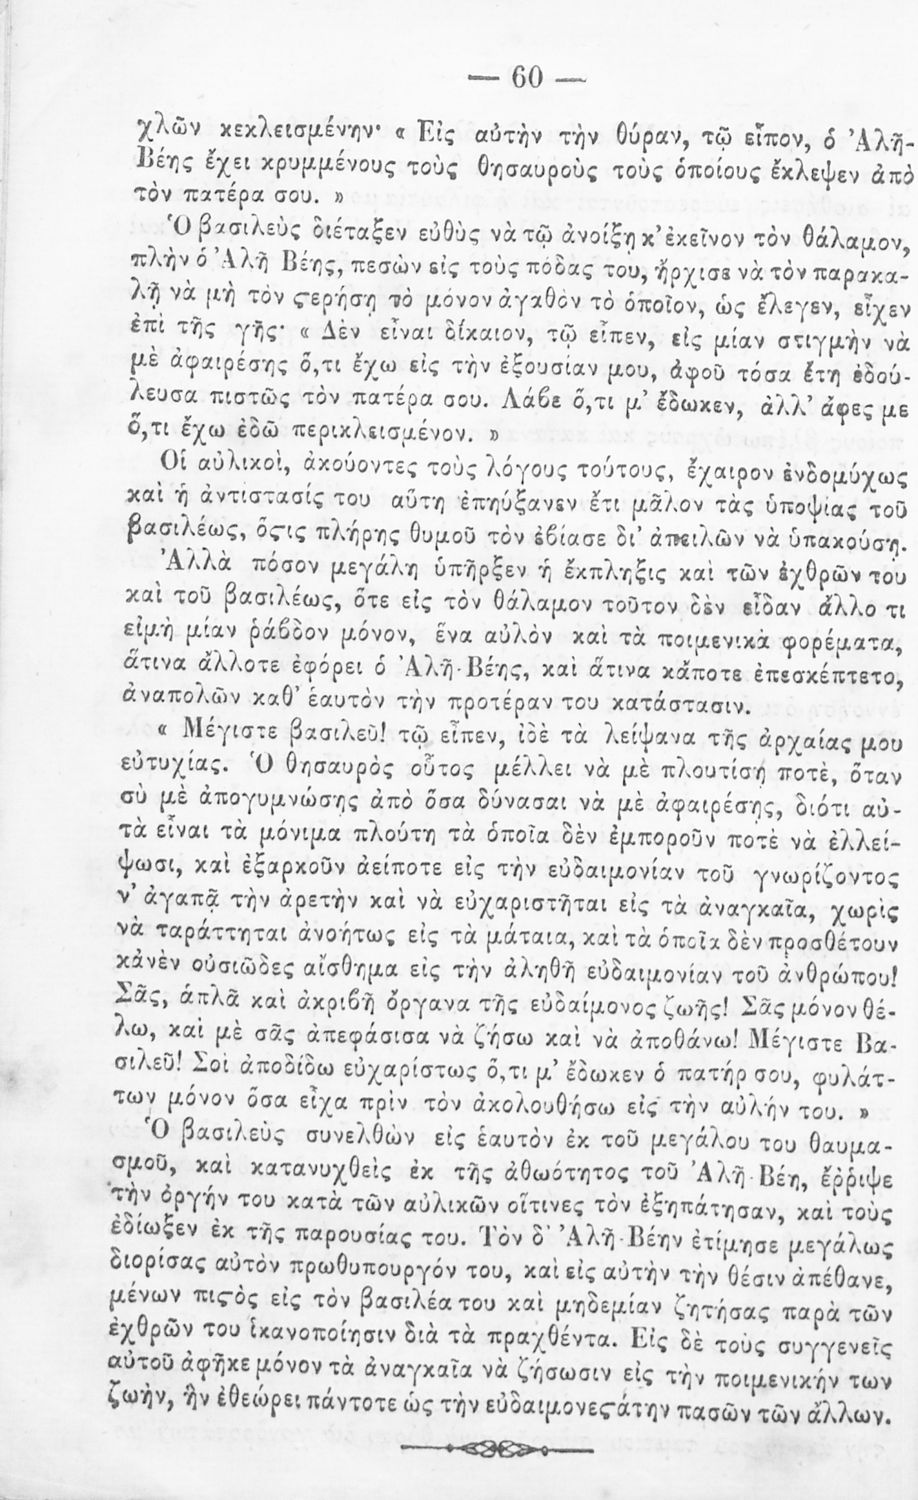 — 60 —
χλῶν κεκλεισμένην· « Εἰς αὐτὴν τὴν θύραν, τῷ εἶπον, ὁ Ἀλῆ-
Βέης ἔχει κρυμμένους τοὺς θησαυροὺς τοὺς ὁποίους ἔκλεψεν ἀπὸ
τὸν πατέρα σου. »
Ὁ βασιλεὺς διέταξεν εὐθὺς νὰ τῷ ἀνοίξῃ κ᾽ ἐκεῖνον τὸν θάλαμον,
πλὴν ὁ Ἀλῆ Βέης, πεσὼν εἰς τοὺς πόδας του, ἤρχισε νὰ τὸν παρακα-
λῇ νὰ μὴ τὸν ϛερήσῃ τὸ μόνον ἀγαθὸν τὸ ὁποῖον, ὡς ἔλεγεν, εἶχεν
ἐπὶ τῆς γῆς· « Δὲν εἶναι δίκαιον, τῷ εἶπεν, εἰς μίαν στιγμὴν νὰ
μὲ ἀφαιρέσῃς ὅ,τι ἔχω εἰς τὴν ἐξουσίαν μου, ἀφοῦ τόσα ἔτη ἐδού-
λευσα πιστῶς τὸν πατέρα σου. Λάβε ὅ,τι μ᾽ ἔδωκεν, ἀλλ᾽ ἄφες με
ὅ,τι ἔχω ἐδῶ περικλεισμένον. »
Οἱ αὐλικοὶ, ἀκούοντες τοὺς λόγους τούτους, ἔχαιρον ἐνδομύχως
καὶ ἡ ἀντιστασίς του αὕτη ἐπηύξανεν ἔτι μᾶλον τὰς ὑποψίας τοῦ
βασιλέως, ὅϛις πλήρης θυμοῦ τὸν ἐβίασε δι᾽ ἀπειλῶν νὰ ὑπακούσῃ.
Ἀλλὰ πόσον μεγάλη ὑπῆρξεν ἡ ἔκπληξις καὶ τῶν ἐχθρῶν του
καὶ τοῦ βασιλέως, ὅτε εἰς τὸν θάλαμον τοῦτον δὲν εἶδαν ἄλλο τι
εἰμὴ μίαν ῥάβδον μόνον, ἕνα αὐλὸν καὶ τὰ ποιμενικὰ φορέματα,
ἅτινα ἄλλοτε ἐφόρει ὁ Ἀλῆ-Βέης, καὶ ἅτινα κἄποτε ἐπεσκέπτετο,
ἀναπολῶν καθ᾽ ἑαυτὸν τὴν προτέραν του κατάστασιν.
« Μέγιστε βασιλεῦ! τῷ εἶπεν, ἰδὲ τὰ λείψανα τῆς ἀρχαίας μου
εὐτυχίας. Ὁ θησαυρὸς οὗτος μέλλει νὰ μὲ πλουτίσῃ ποτὲ, ὅταν
σὺ μὲ ἀπογυμνώσῃς ἀπὸ ὅσα δύνασαι νὰ μὲ ἀφαιρέσῃς, διότι αὐ-
τὰ εἶναι τὰ μόνιμα πλούτη τὰ ὁποῖα δὲν ἐμποροῦν ποτὲ νὰ ἐλλεί-
ψωσι, καὶ ἐξαρκοῦν ἀείποτε εἰς τὴν εὐδαιμονίαν τοῦ γνωρίζοντος
ν᾽ ἀγαπᾷ τὴν ἀρετὴν καὶ νὰ εὐχαριστῆται εἰς τὰ ἀναγκαῖα, χωρὶς
νὰ ταράττηται ἀνοήτως εἰς τὰ μάταια, καὶ τὰ ὁποῖα δὲν προσθέτουν
κἀνὲν οὐσιῶδες αἴσθημα εἰς τὴν ἀληθῆ εὐδαιμονίαν τοῦ ἀνθρώπου!
Σᾶς, ἁπλᾶ καὶ ἀκριβῆ ὄργανα τῆς εὐδαίμονος ζωῆς! Σᾶς μόνον θέ-
λω, καὶ μὲ σᾶς ἀπεφάσισα νὰ ζήσω καὶ νὰ ἀποθάνω! Μέγιστε Βα-
σιλεῦ! Σοὶ ἀποδίδω εὐχαρίστως ὅ,τι μ᾽ ἔδωκεν ὁ πατήρ σου, φυλάτ-
των μόνον ὅσα εἶχα πρὶν τὸν ἀκολουθήσω εἰς τὴν αὐλήν του. »
Ὁ βασιλεὺς συνελθὼν εἰς ἑαυτὸν ἐκ τοῦ μεγάλου του θαυμα-
σμοῦ, καὶ κατανυχθεὶς ἐκ τῆς ἀθωότητος τοῦ Ἀλῆ-Βέη, ἔῤῥιψε
τὴν ὀργήν του κατὰ τῶν αὐλικῶν οἵτινες τὸν ἐξηπάτησαν, καὶ τοὺς
ἐδίωξεν ἐκ τῆς παρουσίας του. Τὸν δ᾽ Ἀλῆ-Βέην ἐτίμησε μεγάλως
διορίσας αὐτὸν πρωθυπουργόν του, καὶ εἰς αὐτὴν τὴν θέσιν ἀπέθανε,
μένων πιϛὸς εἰς τὸν βασιλέα του καὶ μηδεμίαν ζητήσας παρὰ τῶν
ἐχθρῶν του ἱκανοποίησιν διὰ τὰ πραχθέντα. Εἰς δὲ τοὺς συγγενεῖς
αὐτοῦ ἀφῆκε μόνον τὰ ἀναγκαῖα νὰ ζήσωσιν εἰς τὴν ποιμενικήν των
ζωὴν, ἣν ἐθεώρει πάντοτε ὡς τὴν εὐδαιμονεϛάτην πασῶν τῶν ἄλλων.